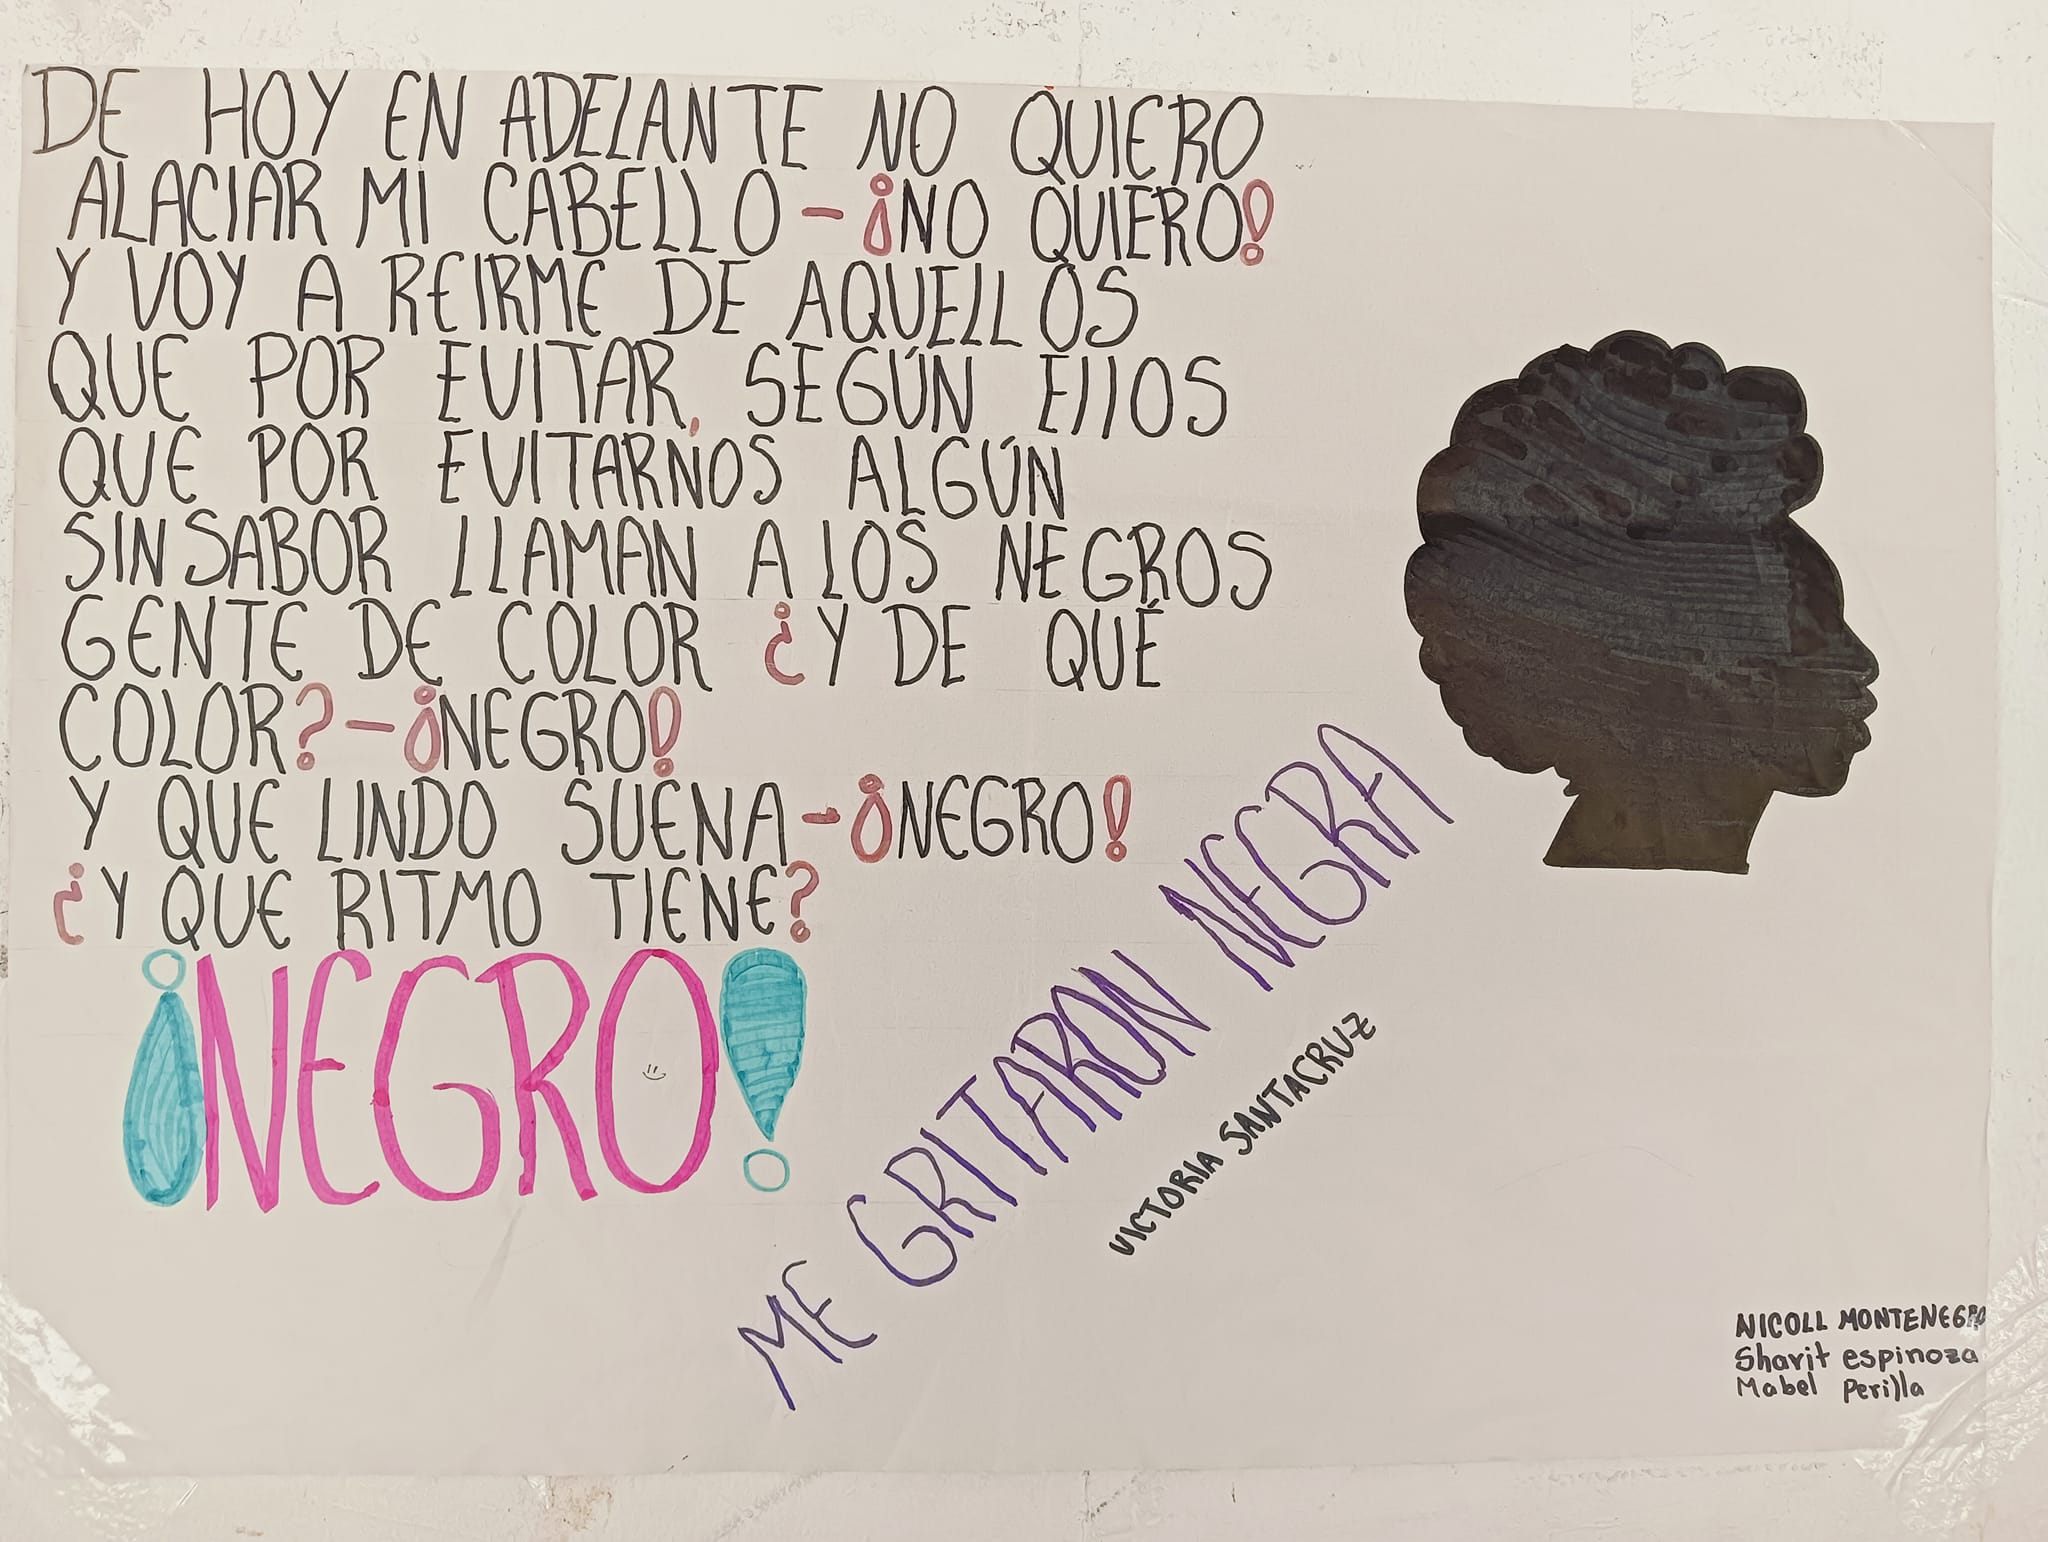 DE HOY EN ADELANTE NO QUIERO
ALACIAR MI CABELLO - ¡NO QUIERO!
Y VOY A REIRME DE AQUELLOS
QUE POR EVITAR, SEGÚN EllOS
QUE POR EVITARNOS ALGÚN
SINSABOR LLAMAN A LOS NEGROS
GENTE DE COLOR ¿Y DE QUÉ
COLOR? - ¡NEGRO!
Y QUE LINDO SUENA - ¡NEGRO!
¿Y QUE RITMO TIENE?
¡NEGRO!
ME GRITARON NEGRA
VICTORIA SANTACRUZ
NICOLL MONTENEGRO
Sharit espinoza
Mabel Perilla